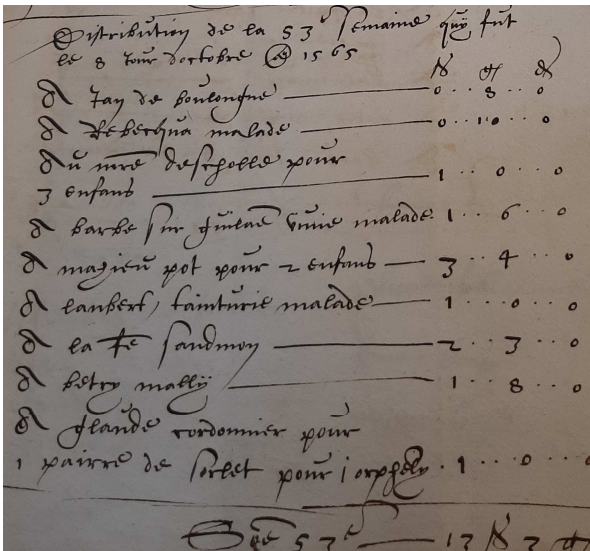 Distribution de la 53e semaine quy fut
le 8 Jour doctobre @ 1565
lb ß d
A Jan de boulongne 0 .. 8 .. 0
A Rebechua malade 0 .. 10 .. 0
Au mre descholle pour
3 enfans 1 .. 0 .. 0
A barbe sur malade 1 .. 6 .. 0
A magieu pot pour 2 enfans 3 .. 4 .. 0
A lanbert tainturie malade 1 .. 0 .. 0
A la fe sandmoy 2 .. 3 .. 0
A betry mally 1 .. 8 .. 0
A glaude cordonnier pour
1 pairre de sorlet pour j orphely 1 .. 0 .. 0
53e 13 lb 3 ß